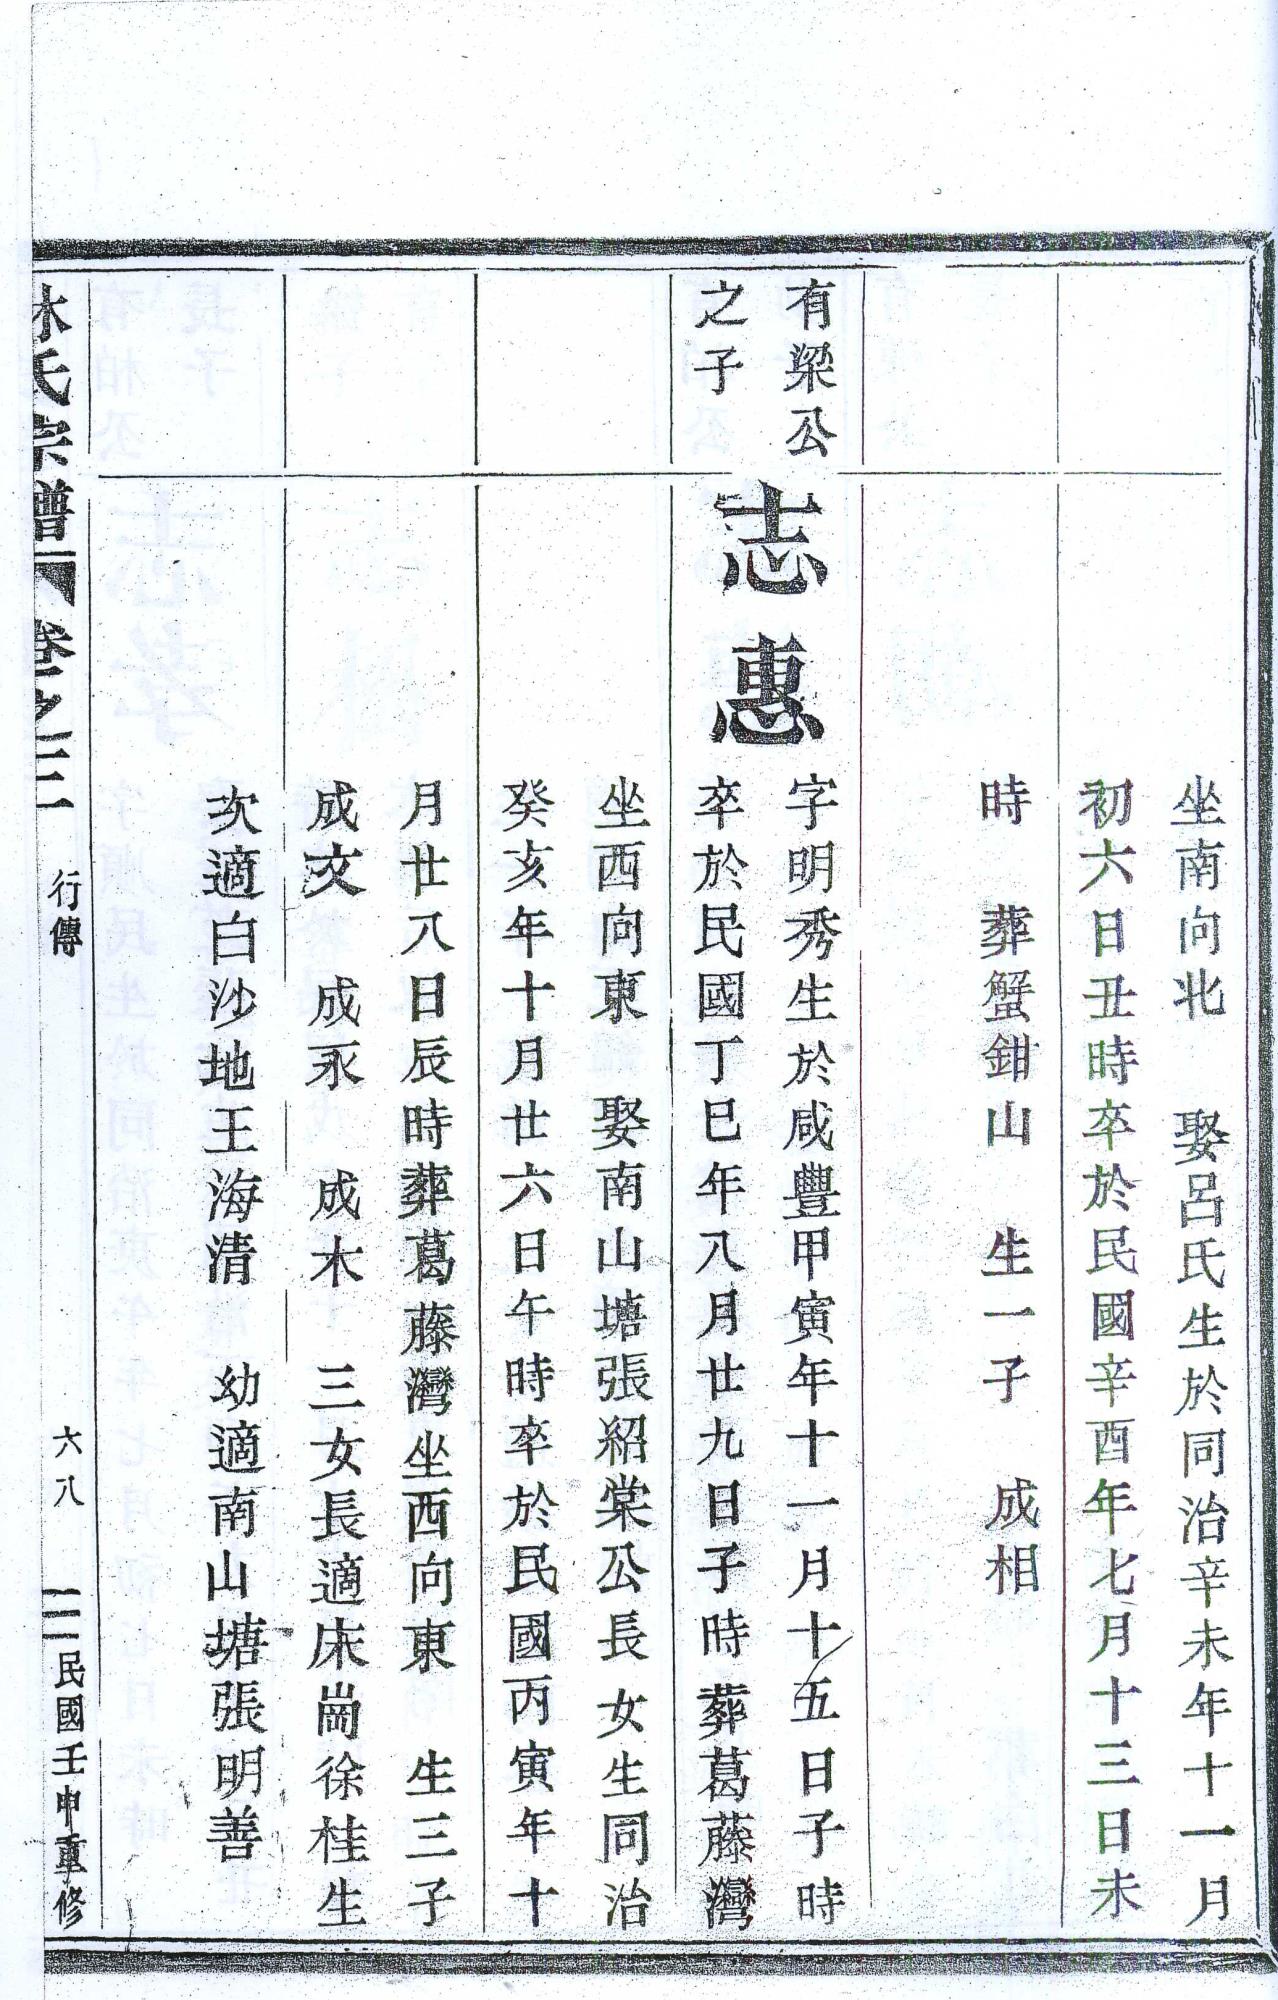 坐南向北　娶呂氏生於同治辛未年十一月
初六日丑時卒於民國辛酉年七月十三日未
時　葬蟹鉗山　生一子　成相
有梁公
之子
志惠
字明秀生於咸豐甲寅年十一月十五日子時
卒於民國丁巳年八月廿九日子時葬葛藤灣
坐西向東　娶南山塘張紹棠公長女生同治
癸亥年十月廿六日午時卒於民國丙寅年十
月廿八日辰時葬葛藤灣坐西向東　生三子
成文　成永　成木　三女長適床崗徐桂生
次適白沙地王海清　幼適南山塘張明善
林氏宗譜　卷之三　行傳　六八　民國壬申重修